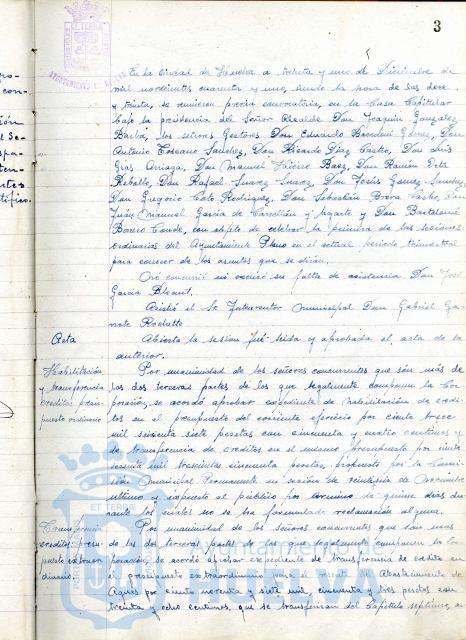 3
En la ciudad de Huelva a treinta y uno de Diciembre de
mil novecientos cuarenta y uno, siendo la hora de las doce
y treinta, se reunieron previa convocatoria, en la Casa Capitular
bajo la presidencia del Señor Alcalde Don Joaquin Gonzalez
Barba, los señores Gestores Don Eduardo Don
Antonio Toscano Sanchez, Don Ricardo Diaz Castro, Don Luis
Arriaga, Don Manuel Baez, Don Ramón
Rebollo, Don Rafael Suarez Suarez, Don Jesús Gomez Sanchez
Don Gregorio Rodriguez, Don Sebastian Don
Juan Manuel Garcia de y Ugarte y Don Bartolomé
Borrero Conde, con objeto de celebrar la primera de las sesiones
ordinarias del Ayuntamiento Pleno en el actual periodo trimestral
para conocer de los asuntos que se dirán.
No concurrió ni excusó su falta de asistencia Don José
Garcia
Asistió el Sr Interventor Municipal Don Gabriel
Acta
Abierta la sesión fué leida y aprobada el acta de la
anterior.
Habilitación
y transferencia
creditos presu-
puesto ordinario
Por unanimidad de los señores concurrentes que son más de
las dos terceras partes de los que legalmente componen la Cor-
poración, se acordó aprobar expediente de habilitación de credi-
tos en el presupuesto del corriente ejercicio por ciento trece
mil siete pesetas con cincuenta y cuatro centimos y
de transferencia de creditos en el mismo presupuesto por ciento
sesenta mil trescientas cincuenta pesetas, propuesto por la Comi-
sión Municipal Permanente en sesión de de Noviembre
ultimo y expuesto al público por termino de quince dias du-
rante los cuales no se ha formulado reclamación alguna.
Transferencia
creditos presu-
puesto extraor-
dinario
Por unanimidad de los señores concurrentes que son mas
de las dos terceras partes de los que legalmente componen la Cor-
poración, se acordó aprobar expediente de transferencia de credito en
el presupuesto extraordinario para el rescate del Abastecimiento de
Aguas por ciento noventa y siete mil, cincuenta y tres pesetas con
treinta y ocho centimos, que se transfieren del Capitulo septimo, ar-
Ayuntamiento de
HUELVA